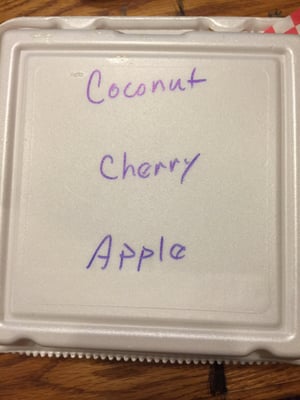 Coconut
Cherry
Apple